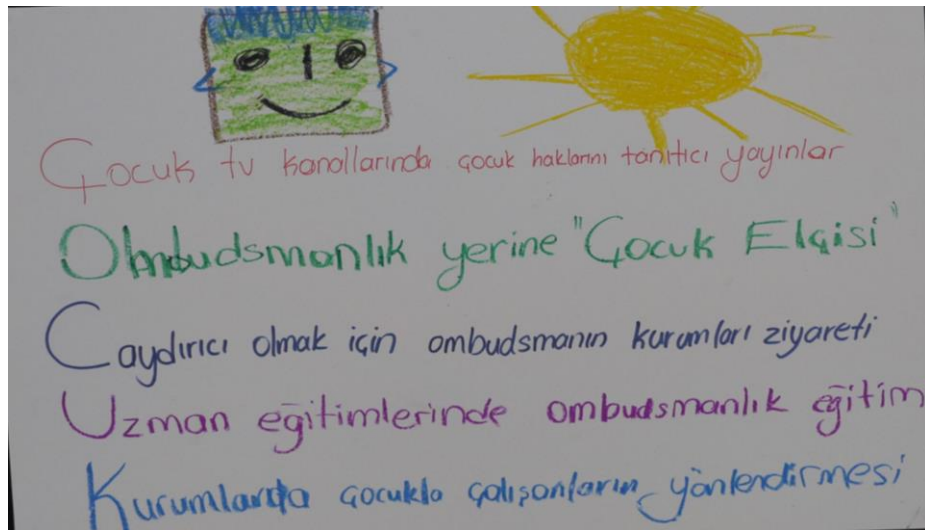 Çocuk tv kanallarında çocuk haklarını tanıtıcı yayınlar
Ombudsmanlık yerine "Çocuk Elçisi"
Caydırıcı olmak için ombudsmanın kurumları ziyareti
Uzman eğitimlerinde ombudsmanlık eğitim
Kurumlarda çocukla çalışanların yönlendirmesi